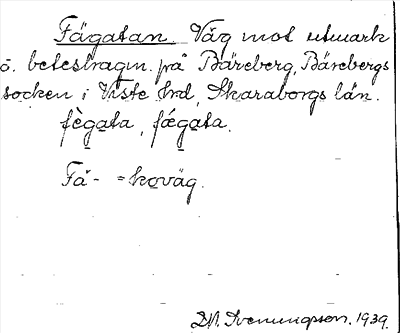 Fägatan. Väg mot utmark
o. betestragm. på Bäreberg, Bärebergs
socken i Viste hrd, Skaraborgs län.
fègata, fǽgata.
Fä- = koväg.
D.A. Svenungsson. 1939.